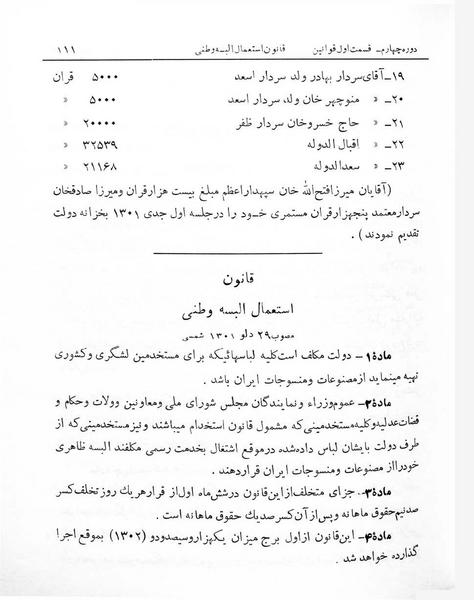 دوره چهارم ـ قسمت اول قوانین قانون استعمال البسه وطنی ۱۱۱
۱۹ـ آقای سردار بهادر ولد سردار اسعد ۵۰۰۰ قران
۲۰ـ « منوچهر خان ولد سردار اسعد ۵۰۰۰ «
۲۱ـ « حاج خسروخان سردار ظفر ۲۰۰۰۰ «
۲۲ـ « اقبال الدوله ۳۲۵۳۹ «
۲۳ـ « سعدالدوله ۲۱۱۶۸ «
(آقایان میرزا فتح‌الله خان سپهدار اعظم مبلغ بیست هزار قران و میرزا صادقخان
سردار معتمد پنجهزار قران مستمری خود را در جلسه اول جدی ۱۳۰۱ بخزانه دولت
تقدیم نمودند) .
قانون
استعمال البسه وطنی
مصوب ۲۹ دلو ۱۳۰۱ شمسی
مادهٔ ۱ ـ دولت مکلف است کلیه لباسهائیکه برای مستخدمین لشگری و کشوری
تهیه مینماید از مصنوعات و منسوجات ایران باشد .
مادهٔ ۲ـ عموم وزراء و نمایندگان مجلس شورای ملی و معاونین و ولات و حکام و
قضات عدلیه و کلیه مستخدمینی که مشمول قانون استخدام میباشند و نیز مستخدمینی که از
طرف دولت بایشان لباس داده شده در موقع اشتغال بخدمت رسمی مکلفند البسه ظاهری
خود را از مصنوعات و منسوجات ایران قرار دهند .
مادهٔ ۳ـ جزای متخلف از این قانون در شش ماه اول از قرار هر یك روز تخلف کسر
صد نیم حقوق ماهانه و پس از آن کسر صد یك حقوق ماهانه است .
مادهٔ ۴ـ این قانون از اول برج میزان یکهزار و سیصد و دو (۱۳۰۲) بموقع اجرا
گذارده خواهد شد .